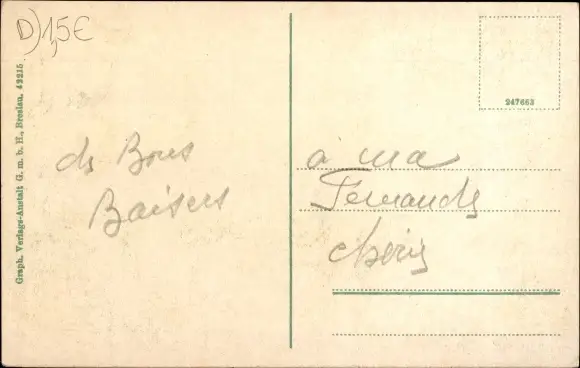 D) 1,5€
Graph. Verlags-Anstalt G. m. b. H., Breslau. 42215
247663
de Bons
Baisers
à ma
Fernande
chérie